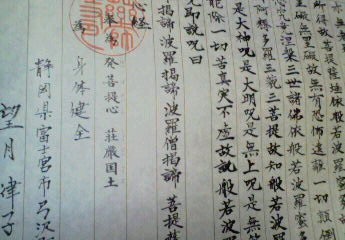 所得故菩提薩埵依般若波羅蜜多
罣礙故無有恐怖遠離一切顛倒
涅槃三世諸佛依般若波羅蜜
阿耨多羅三藐三菩提故知般若波羅
是大神呪是大明呪是無上呪是無
能除一切苦真実不虚故説般若波
即説呪曰
揭諦 波羅揭諦 波羅僧揭諦 菩提薩
心経
発菩提心 荘厳国土
為 身体健全
静岡県富士宮市弓沢
望月律子